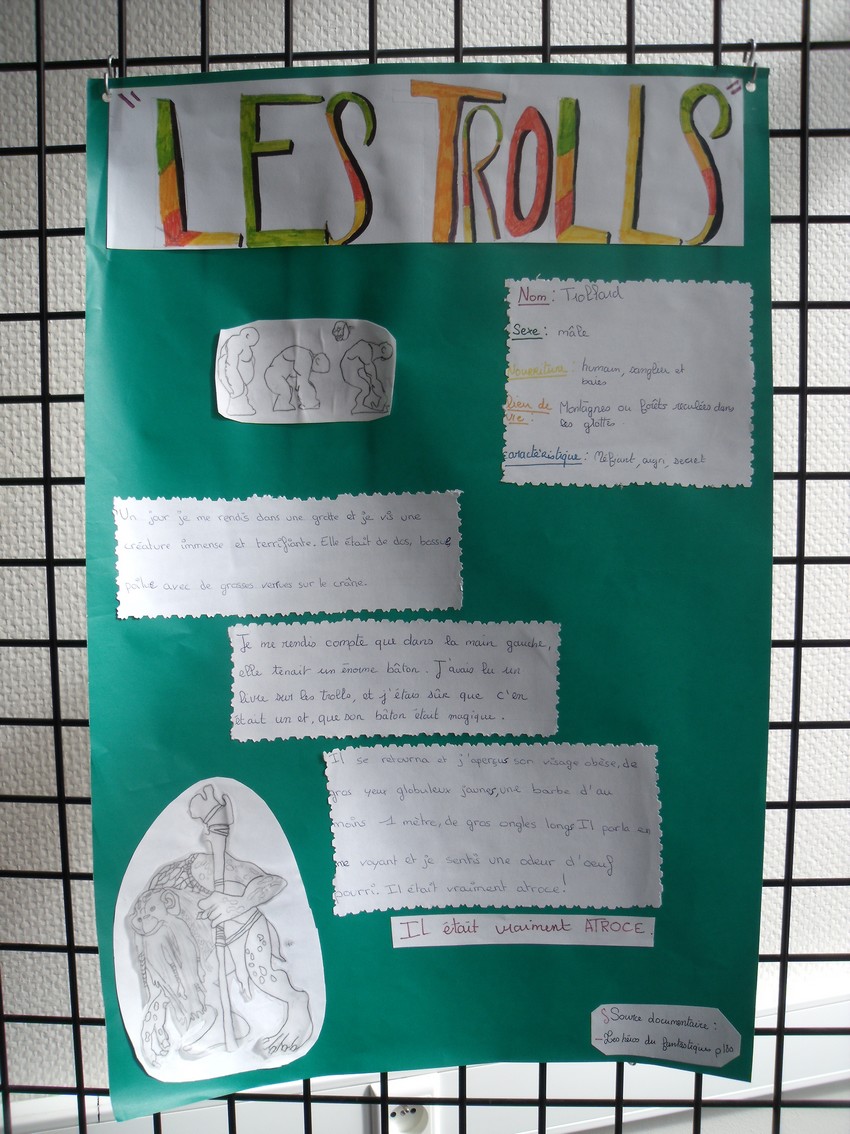 "LES TROLLS"
Nom : Trollard
Sexe : mâle
Nourriture : humain, sanglier et
baies
Lieu de vie : Montagnes ou forêts reculées dans
les grottes.
caractéristique : Méfiant, aigri, secret
Un jour je me rendis dans une grotte et je vis une
créature immense et terrifiante. Elle était de dos, bossue
poilue avec de grosses verrues sur le crâne.
Je me rendis compte que dans la main gauche,
elle tenait un énorme bâton. J'avais lu un
livre sur les trolls, et j'étais sûr que c'en
était un et, que son bâton était magique.
Il se retourna et j'aperçus son visage obèse, de
gros yeux globuleux jaunes, une barbe d'au
moins 1 mètre, de gros ongles longs Il parla en
me voyant et je sentis une odeur d'oeuf
pourri. Il était vraiment atroce!
Il était vraiment ATROCE.
Source documentaire :
- Les héros du fantastique